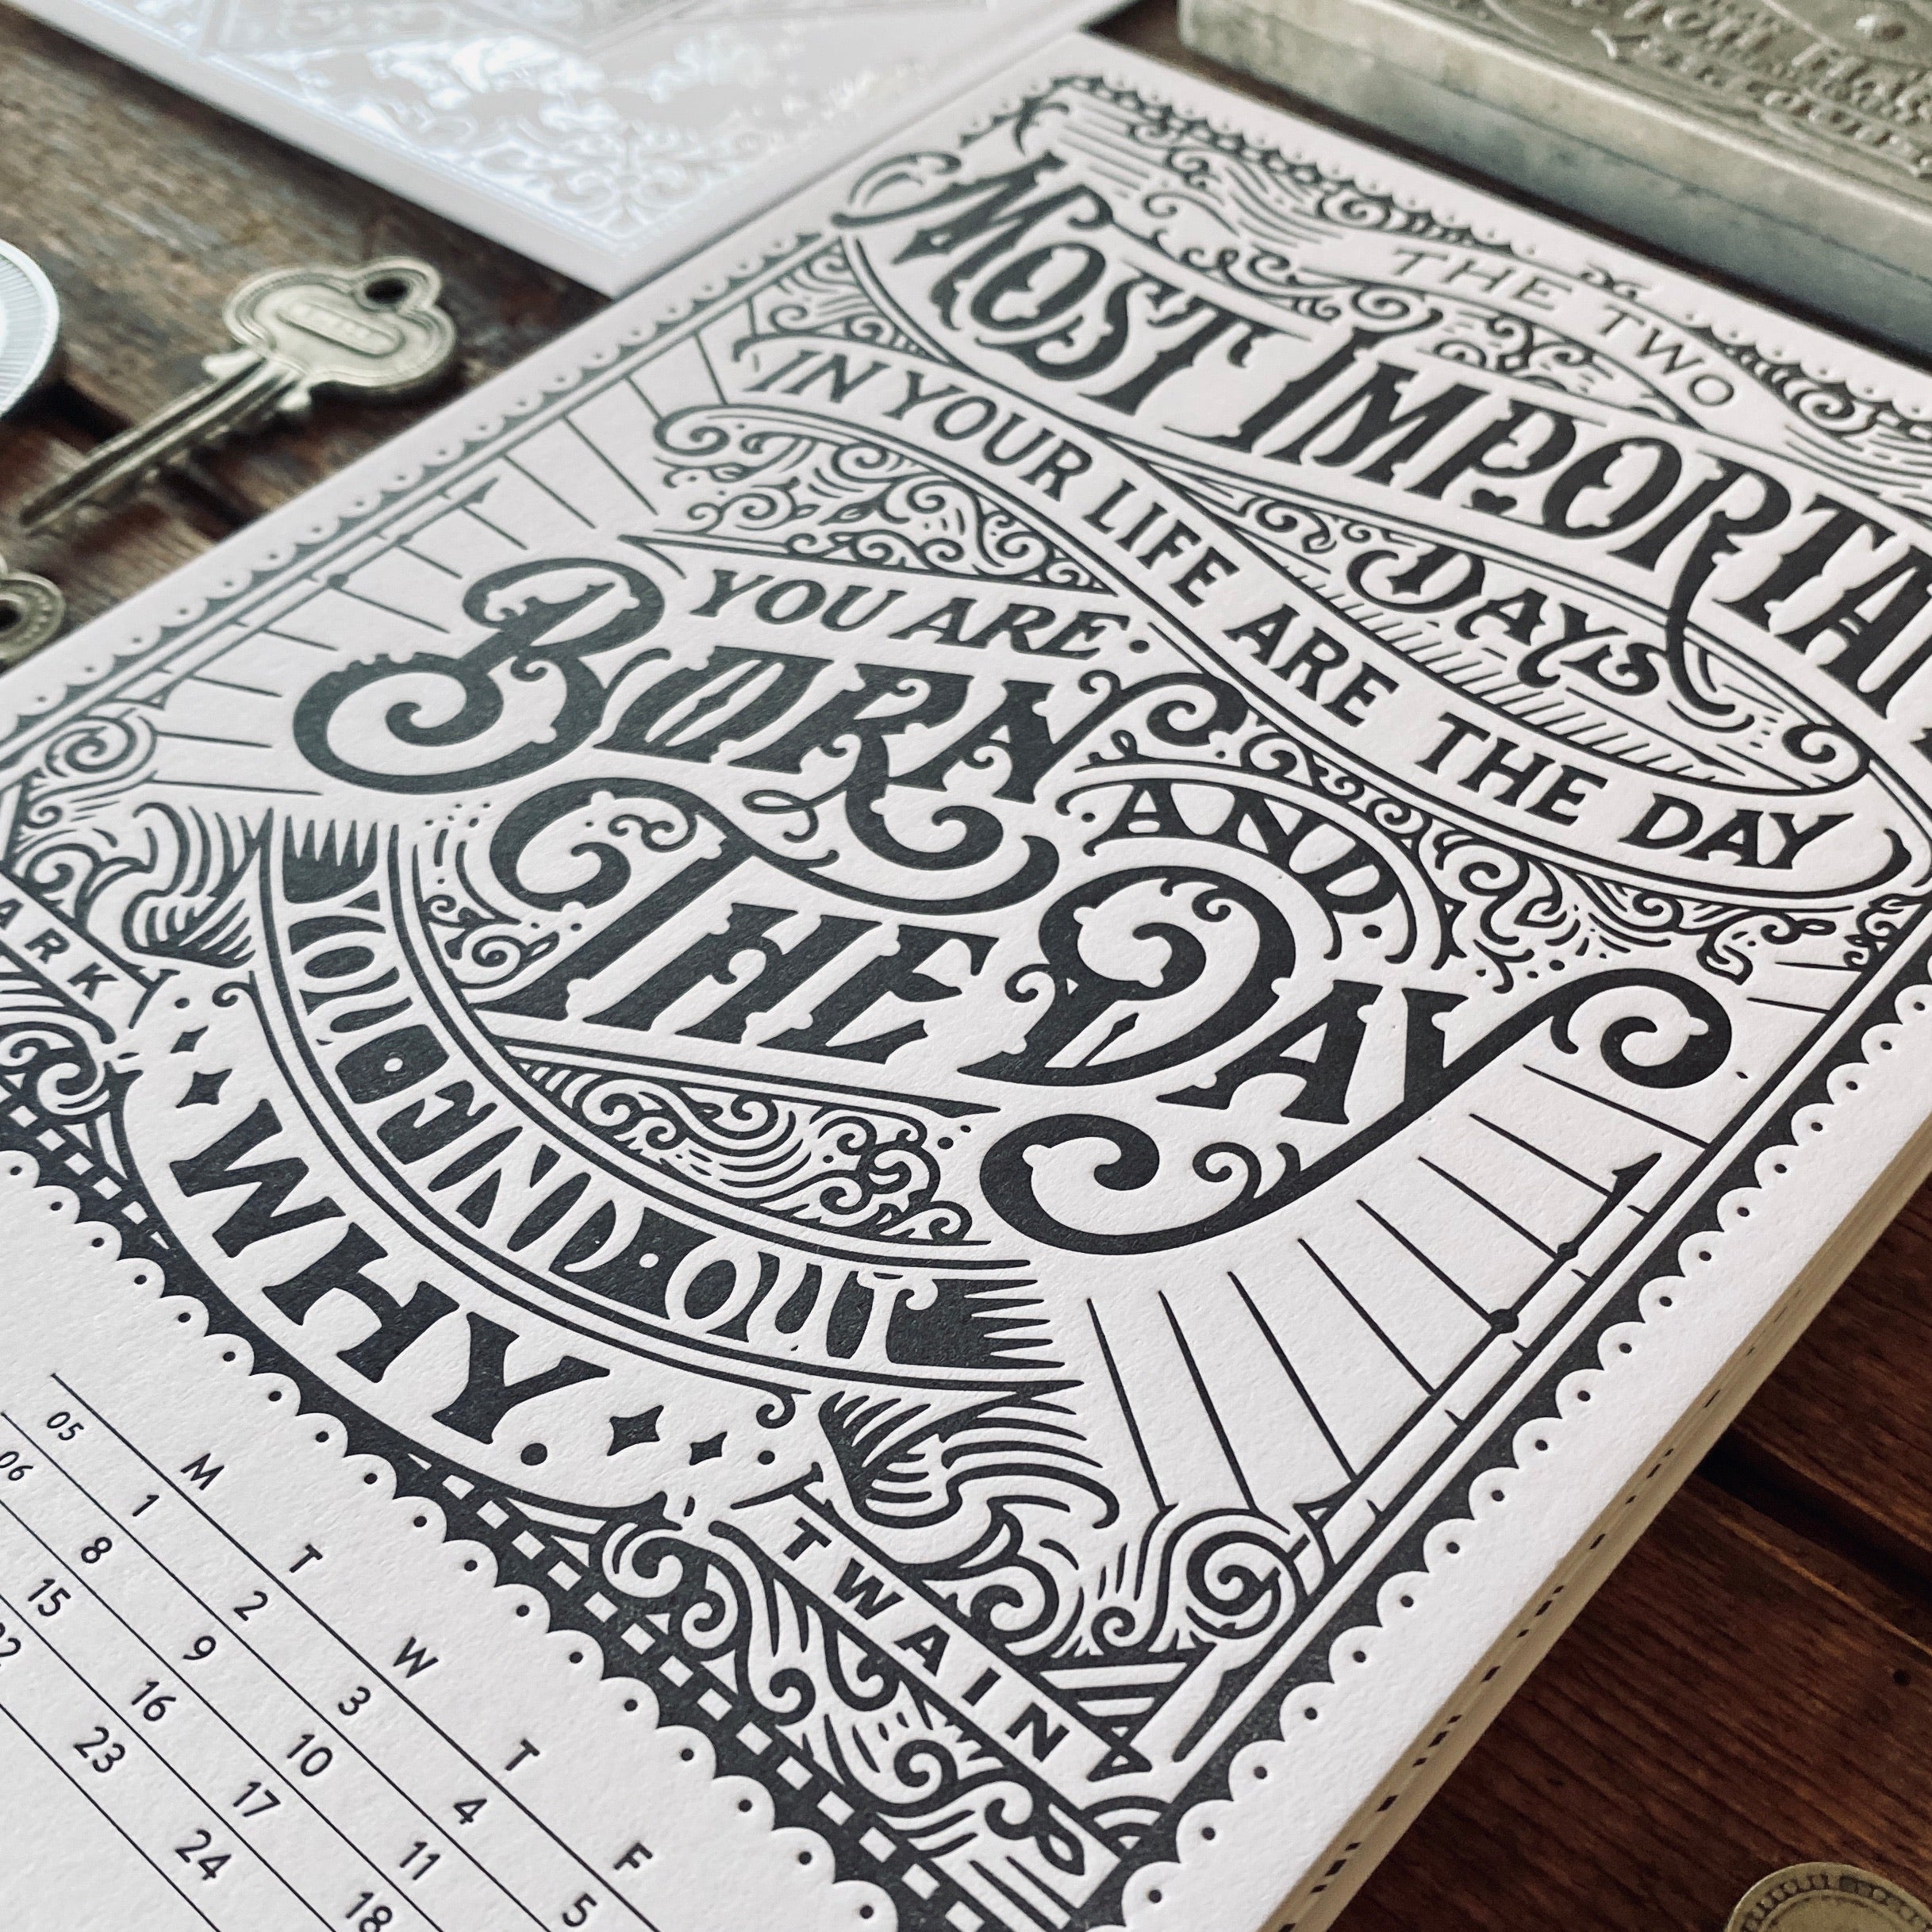 THE TWO
MOST IMPORTA
DAYS
IN YOUR LIFE ARE THE DAY
YOU ARE
BORN
AND
THE DAY
YOU FIND OUT
WHY.
ARK
TWAIN
M T W T F
05 1 2 3 4 5
06 8 9 10 11
15 16 17 18
23 24